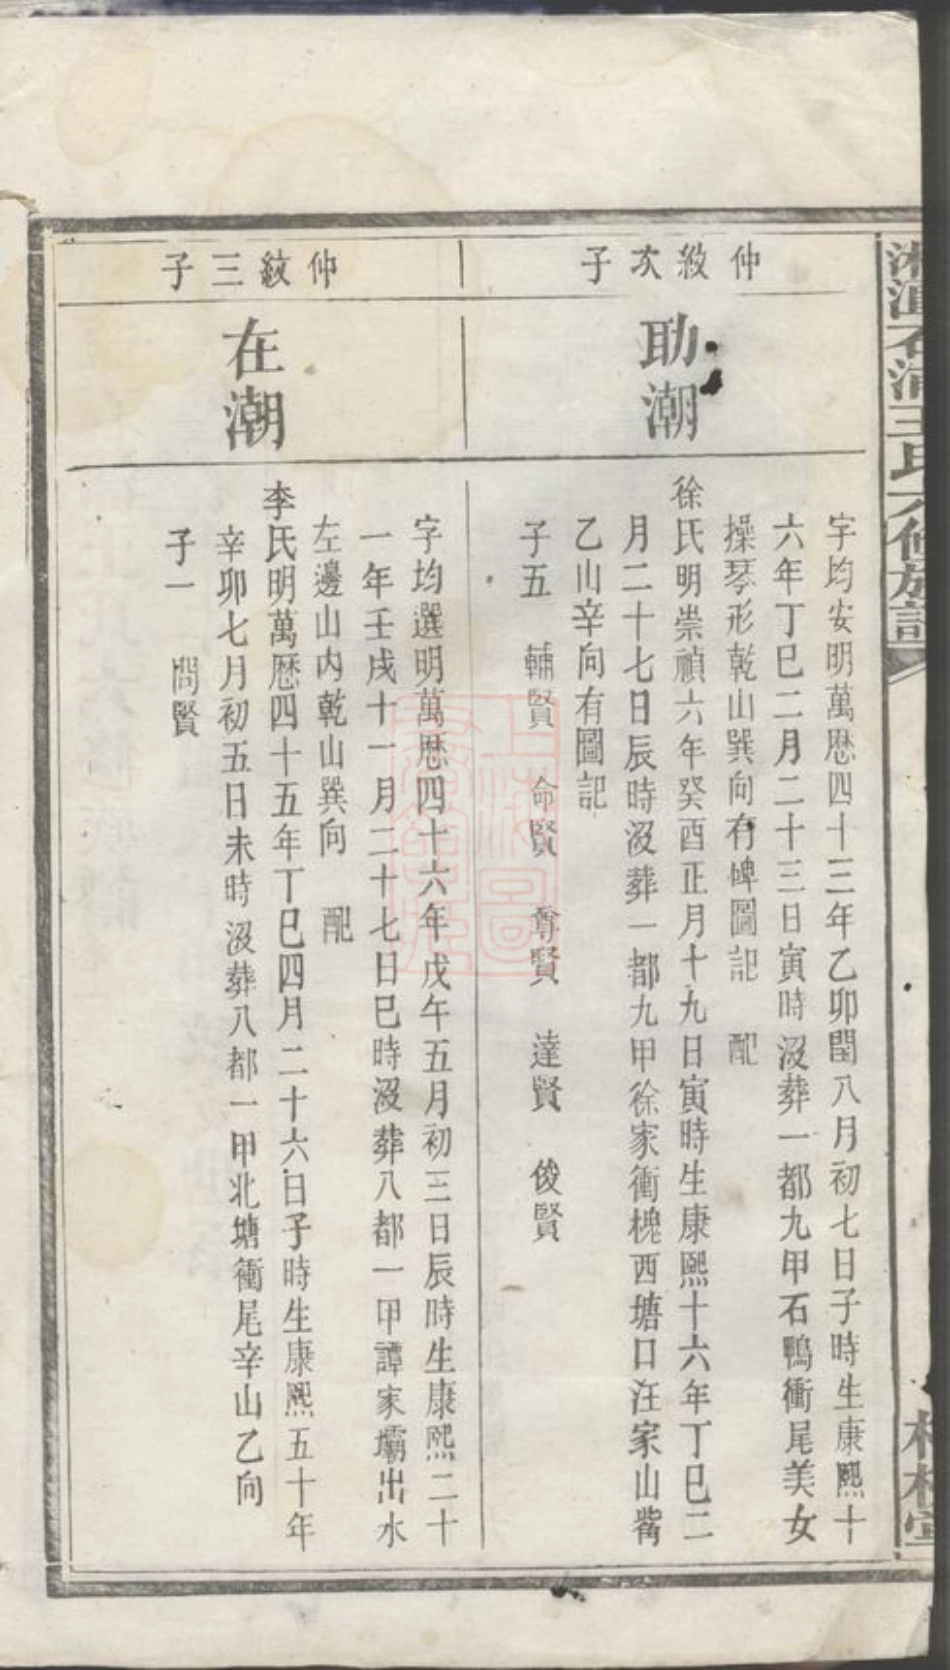 仲紋次子
助潮
字均安明萬厯四十三年乙卯閏八月初七日子時生康熙十
六年丁巳二月二十三日寅時沒葬一都九甲石鴨衝尾美女
操琴形乾山巽向有碑圖記　配
徐氏明崇禎六年癸酉正月十九日寅時生康熙十六年丁巳二
月二十七日辰時沒葬一都九甲徐家衝槐西塘口汪家山觜
乙山辛向有圖記
子五　輔賢　命賢　尊賢　達賢　俊賢
仲紋三子
在潮
字均選明萬厯四十六年戊午五月初三日辰時生康熙二十
一年壬戌十一月二十七日巳時沒葬八都一甲譚家壩出水
左邊山内乾山巽向　配
李氏明萬厯四十五年丁巳四月二十六日子時生康熙五十年
辛卯七月初五日未時沒葬八都一甲北塘衝尾辛山乙向
子一　問賢